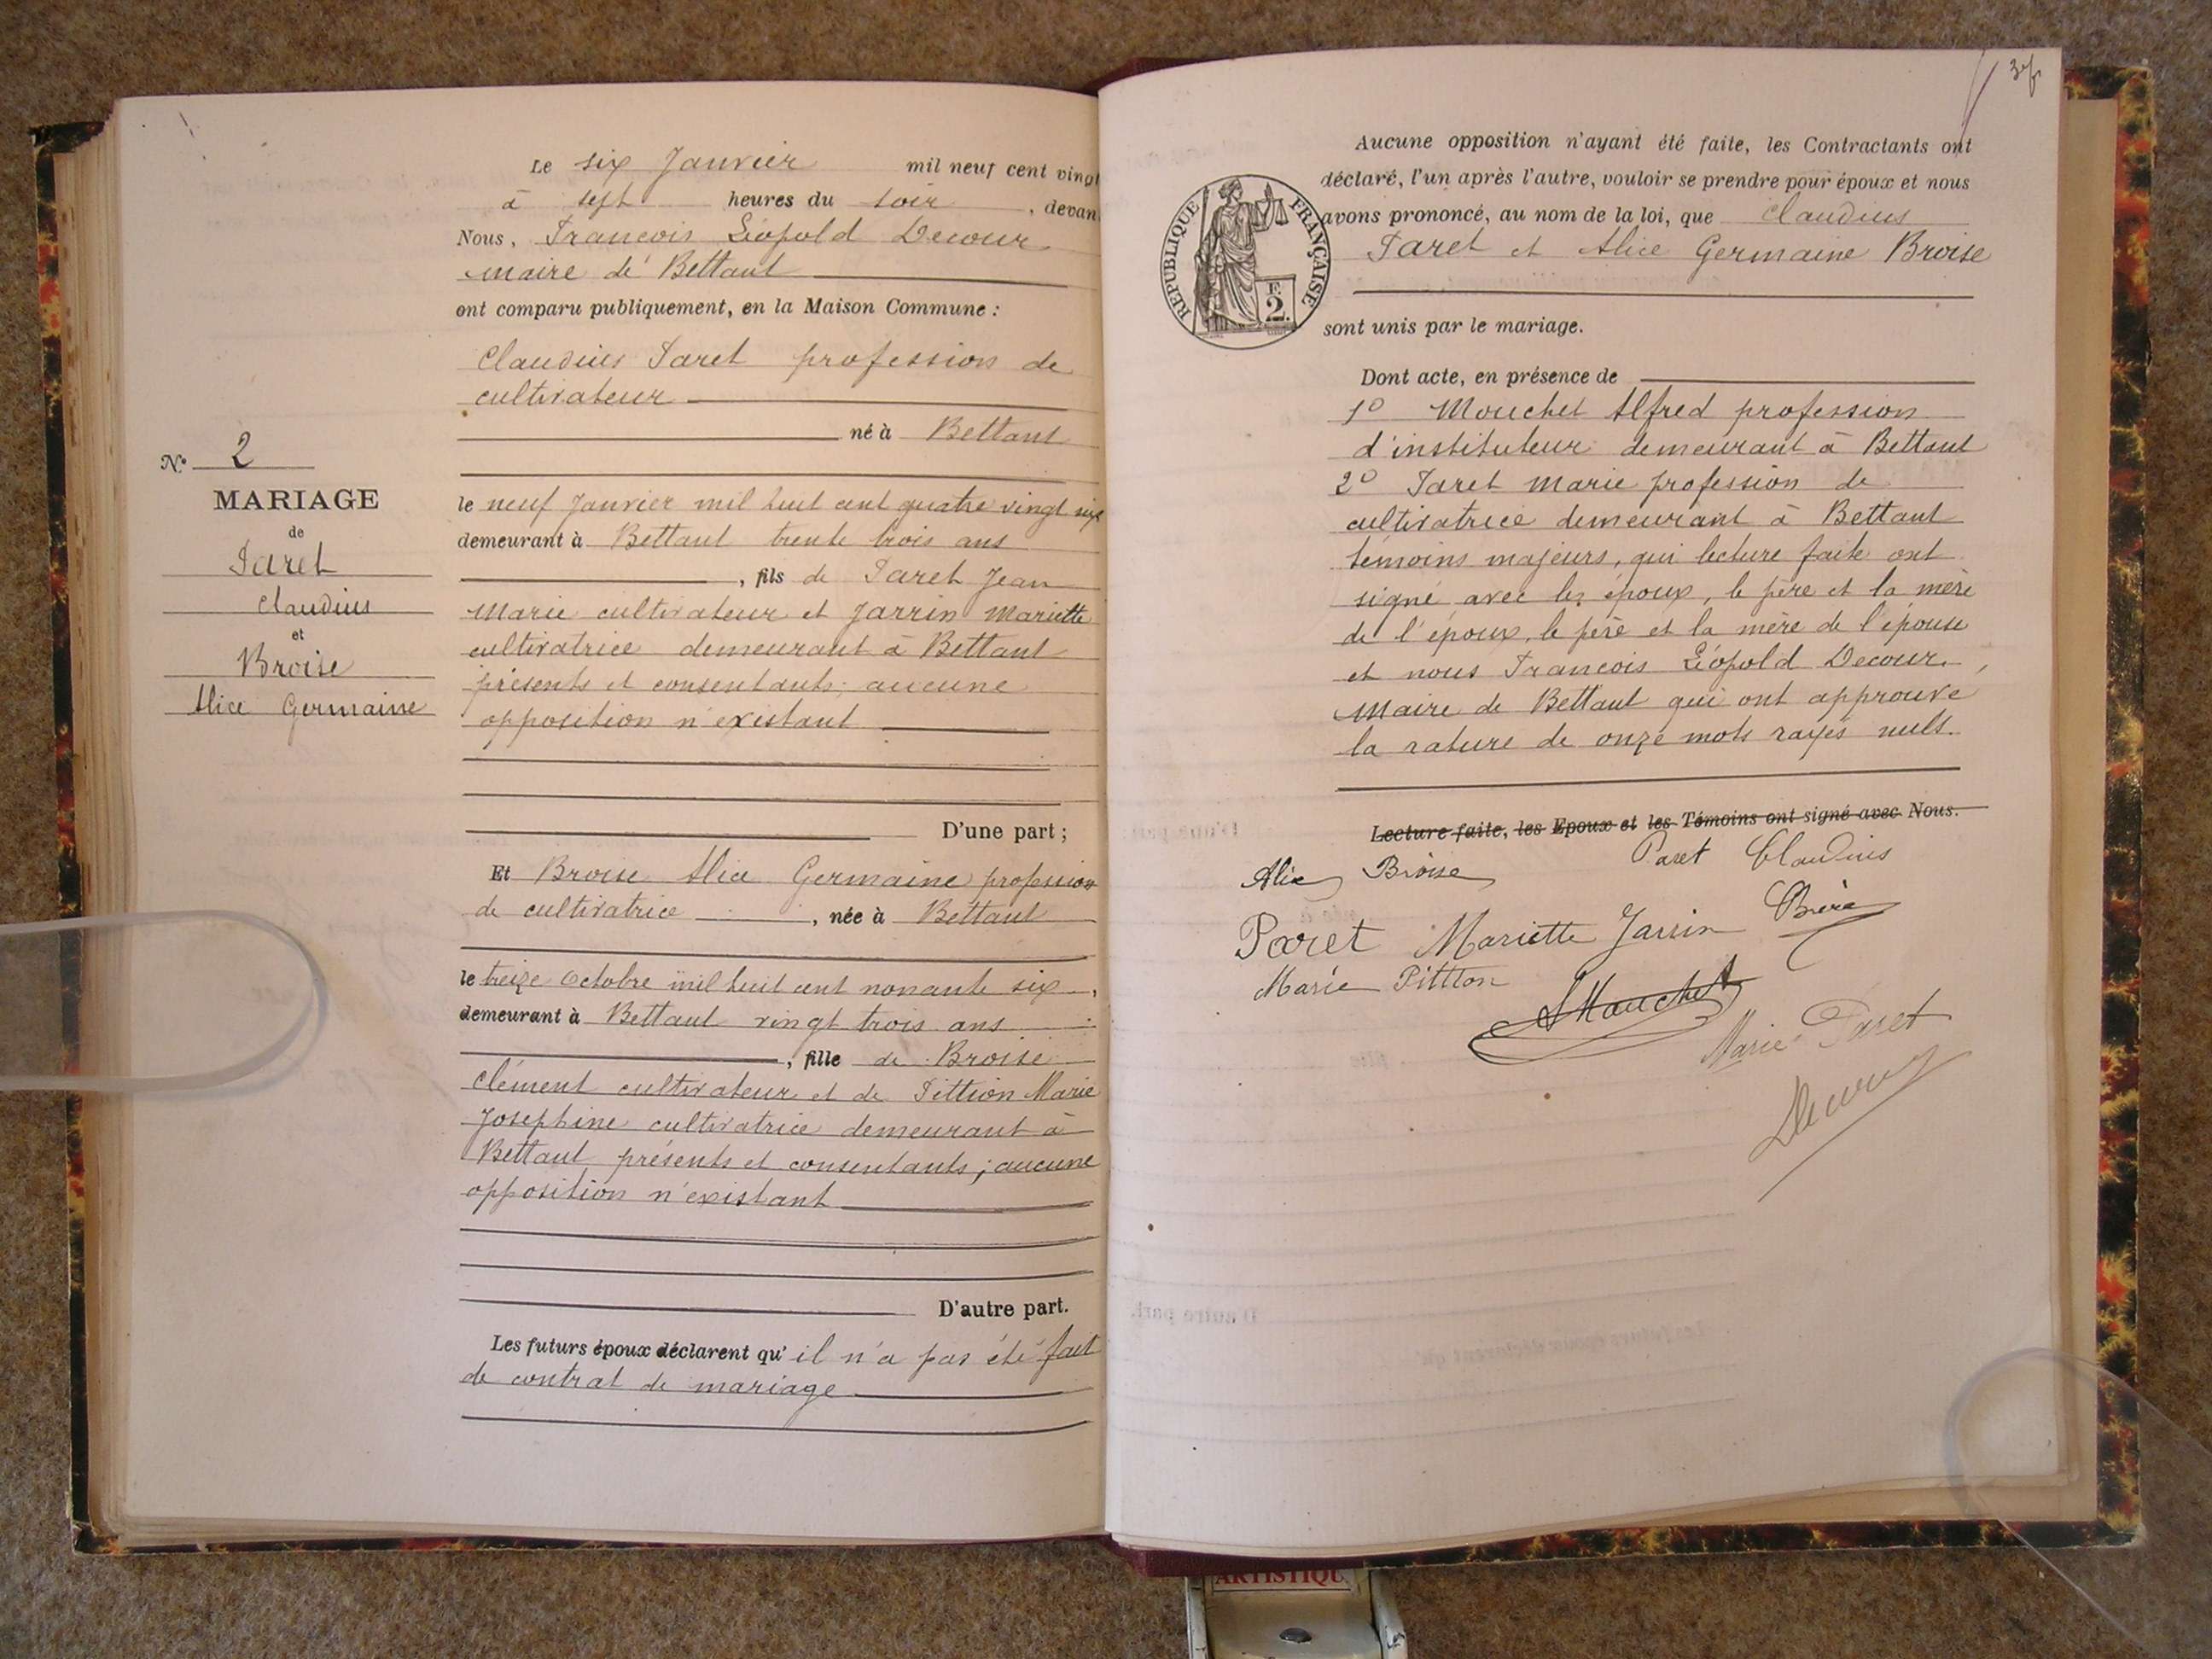 Le six Janvier mil neuf cent vingt
à sept heures du soir, devan
Nous, Francois Léopold Decour
maire de Bettant
ont comparu publiquement, en la Maison Commune :
Claudius Paret profession de
cultivateur
né à Bettant
N° 2
MARIAGE
de
Paret
Claudius
et
Broise
Alice Germaine
le neuf Janvier mil huit cent quatre vingt six
demeurant à Bettant trente trois ans
, fils de Paret Jean
Marie cultivateur et Jarrin Mariette
cultivatrice demeurant à Bettant
présents et consentants; aucune
opposition n'existant
D'une part ;
Et Broise Alice Germaine profession
de cultivatrice, née à Bettant
le treize Octobre mil huit cent nonante six,
demeurant à Bettant vingt trois ans
, fille de Broise
Clément cultivateur et de Pittion Marie
Josephine cultivatrice demeurant à
Bettant présents et consentants ; aucune
opposition n'existant
D'autre part.
Les futurs époux déclarent qu'il n'a pas été fait
de contrat de mariage
Aucune opposition n'ayant été faite, les Contractants ont
déclaré, l'un après l'autre, vouloir se prendre pour époux et nous
avons prononcé, au nom de la loi, que Claudius
Paret et Alice Germaine Broise
RÉPUBLIQUE FRANÇAISE
F.
2.
sont unis par le mariage.
Dont acte, en présence de
1° Mouchet Alfred profession
d'instituteur demeurant à Bettant
2° Paret Marie profession de
cultivatrice demeurant à Bettant
témoins majeurs, qui lecture faite ont
signé avec les époux, le père et la mère
de l'époux, le père et la mère de l'épouse
et nous Francois Léopold Decour,
Maire de Bettant qui ont approuvé
la rature de onze mots rayés nuls.
Lecture faite, les Epoux et les Témoins ont signé avec Nous.
Alice Broise Paret Claudius
Paret Mariette Jarrin
Marie Pittion
AMouchet
Marie Paret
Decour
ARTISTIQU